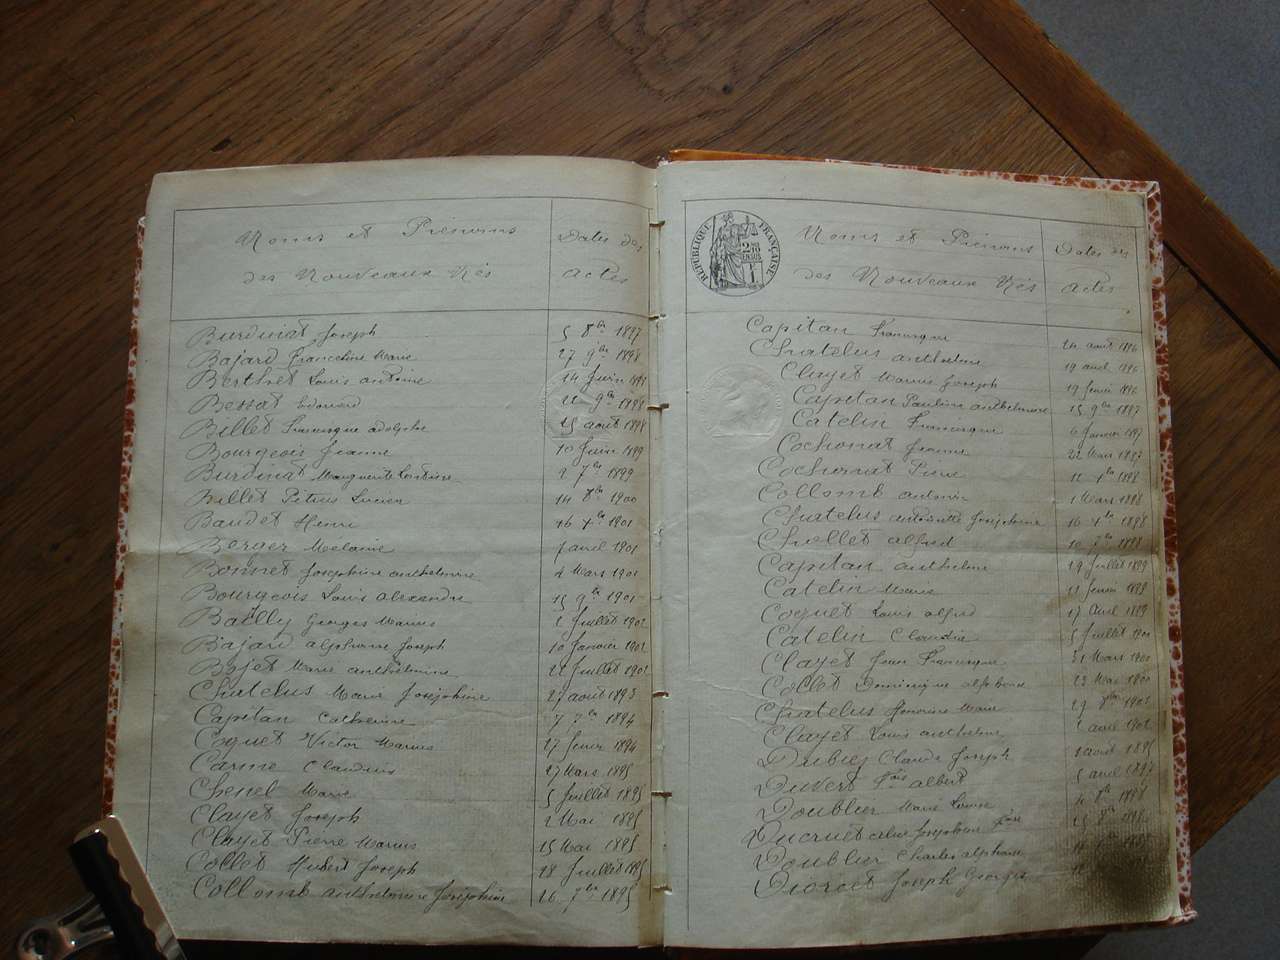 Noms et Prénoms
des Nouveaux Nés
Dates des
actes
Burdinat Joseph 5 8bre 1897
Bajard Franceline Marie 27 9bre 1898
Berthet Louis antoine 14 Juin 1898
Bessat Edouard 21 9bre 1898
Billet Francisque adolphe 15 août 1898
Bourgeois Jeanne 10 Juin 1899
Burdinat Marguerite 2 7bre 1899
Billet Petrus Lucien 14 8bre 1900
Baudet Henri 16 Xbre 1901
Berger Mélanie 1 avril 1901
Bonnet Joséphine anthelmine 4 Mars 1901
Bourgeois Louis alexandre 15 9bre 1901
Bailly Georges Marius 6 Juillet 1902
Bajard alphonse Joseph 10 Janvier 1902
Bojet Marie anthelmine 22 Juillet 1902
Chatelus Marie Joséphine 27 août 1893
Capitan Catherine 7 7bre 1894
Coquet Victor Marius 27 février 1894
Carme Claudius 27 Mars 1895
Chenel Marie 5 Juillet 1895
Clayet Joseph 2 Mai 1895
Clayet Pierre Marius 15 Mai 1895
Collet Hubert Joseph 28 Juillet 1895
Collomb anthelmine Joséphine 26 7bre 1895
RÉPUBLIQUE FRANÇAISE
Noms et Prénoms
des Nouveaux Nés
Dates des
actes
Capitan Francisque 24 août 1896
Chatelus anthelme 19 avril 1896
Clayet Marius Joseph 19 février 1896
Capitan Pauline anthelmine 15 9bre 1897
Catelin Francisque 6 Janvier 1897
Cochonat Jeanne 22 Mars 1897
Cochonat Pierre 1898
Collomb antonin 1 Mars 1898
Chatelus antoinette Joséphine 16 Xbre 1898
Chollet alfred 10 7bre 1898
Capitan anthelme 19 Juillet 1899
Catelin Marie 11 février 1899
Coquet Louis alfred 17 avril 1899
Catelin Claudia 5 Juillet 1900
Clayet Jean Francisque 31 Mars 1900
Collet Dominique alphonse 23 Mai 1900
Chatelus Honorine Marie 19 8bre 1901
Clayet Louis anthelme 2 avril 1902
Dubiez Claude Joseph 1 août 1895
Duvert fçois albert 5 avril 1897
Doublier Marie Louise 8bre 1898
Ducruet Joséphine 8bre 1898
Doublier Charles alphonse
Dioret Joseph Georges